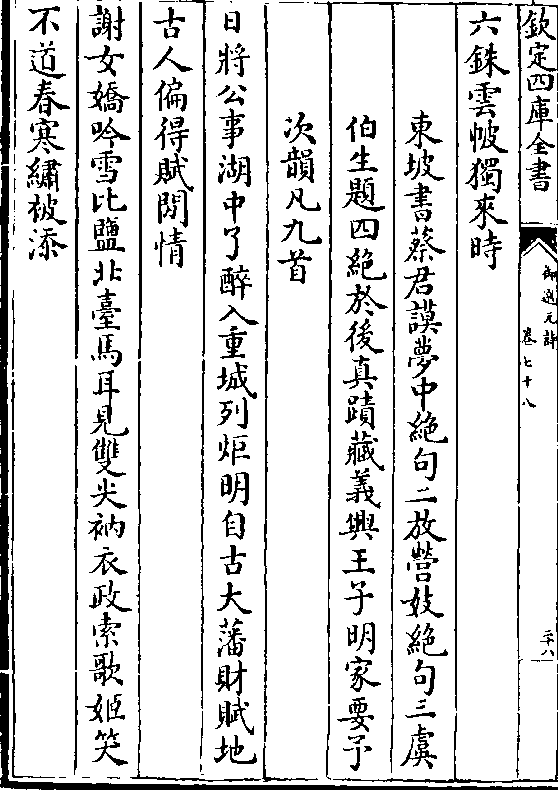 欽定四庫全書
御選元詩
卷七十八
三十八
六銖雲帔獨來時
東坡書蔡君謨夢中絶句二放營妓絶句三虞
伯生題四絶於後真蹟藏義興王子明家要予
次韻凡九首
日將公事湖中了醉入重城列炬明自古大藩財賦地
古人偏得賦閒情
謝女嬌吟雪比鹽北臺馬耳見雙尖衲衣政索歌姬笑
不道春寒繡被添